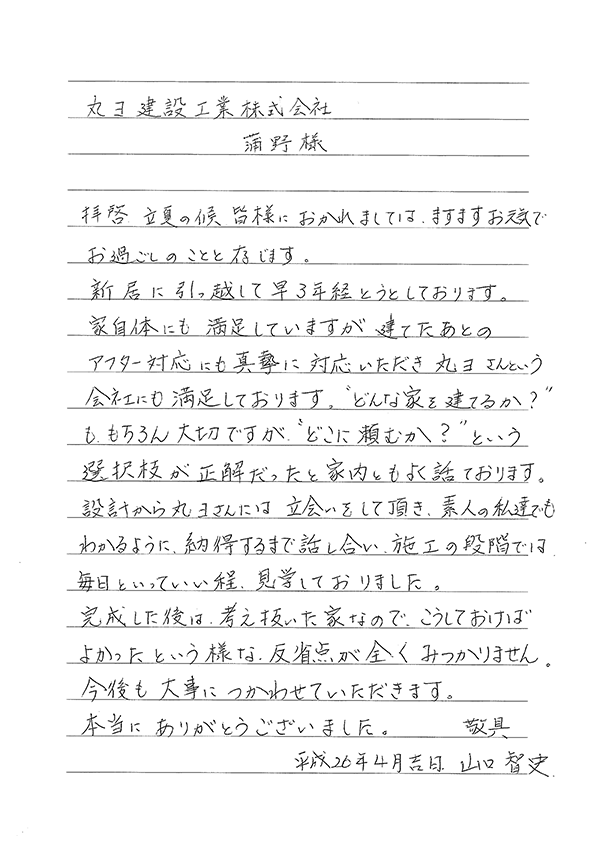 丸ヨ建設工業株式会社
蒲野様
拝啓 立夏の候 皆様に おかれましては、ますますお元気で
お過ごしのことと存じます。
新居に引っ越して早3年経とうとしております。
家自体にも 満足していますが 建てたあとの
アフター対応にも真摯に対応いただき 丸ヨさんという
会社にも満足しております。“どんな家を建てるか？”
も、もちろん大切ですが、“どこに頼むか？”という
選択枝が正解だったと家内ともよく話ております。
設計から丸ヨさんには 立会いをして頂き、素人の私達でも
わかるように、納得するまで話し合い、施工の段階では
毎日といっていい程、見学しておりました。
完成した後は、考え抜いた家なので、こうしておけば
よかったという様な、反省点が全くみつかりません。
今後も大事につかわせていただきます。
本当にありがとうございました。 敬具
平成26年4月吉日 山口智史